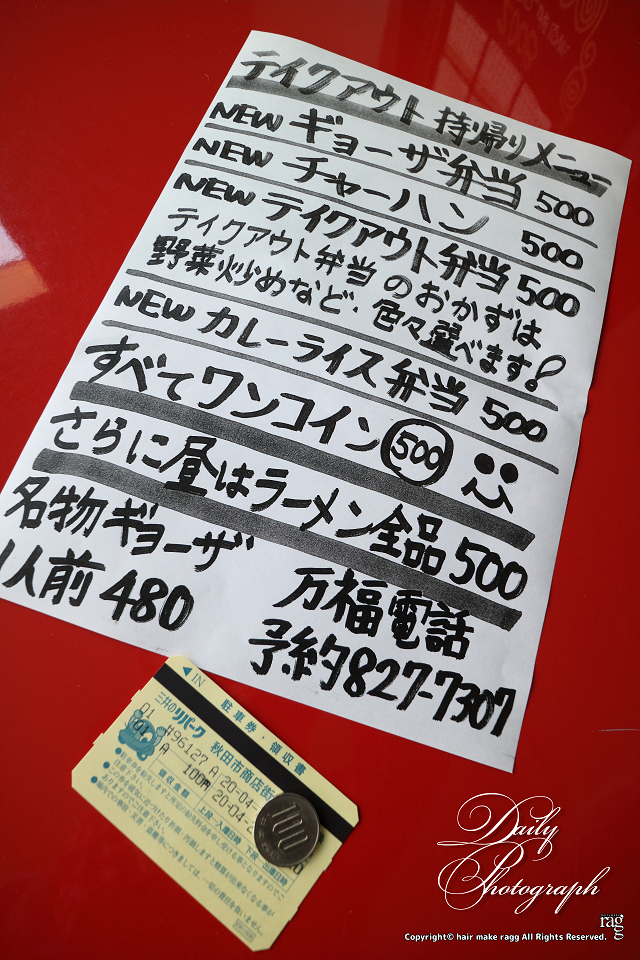 テイクアウト 持帰りメニュー
NEW ギョーザ弁当 500
NEW チャーハン 500
NEW テイクアウト弁当 500
テイクアウト弁当のおかずは
野菜炒めなど、色々盛べます!
NEW カレーライス弁当 500
すべてワンコイン 500
さらに昼はラーメン全品 500
名物ギョーザ
1人前 480
万福電話
予約 827-7307
◀IN 駐車券・領収書
三井のリパーク 秋田市商店街
01 #96127 A 20-04
A 100円 20-04-2
領収金額 上段-入庫日時 下段-出庫日時
100
Daily
Photograph
ragg
Copyright© hair make ragg All Rights Reserved.